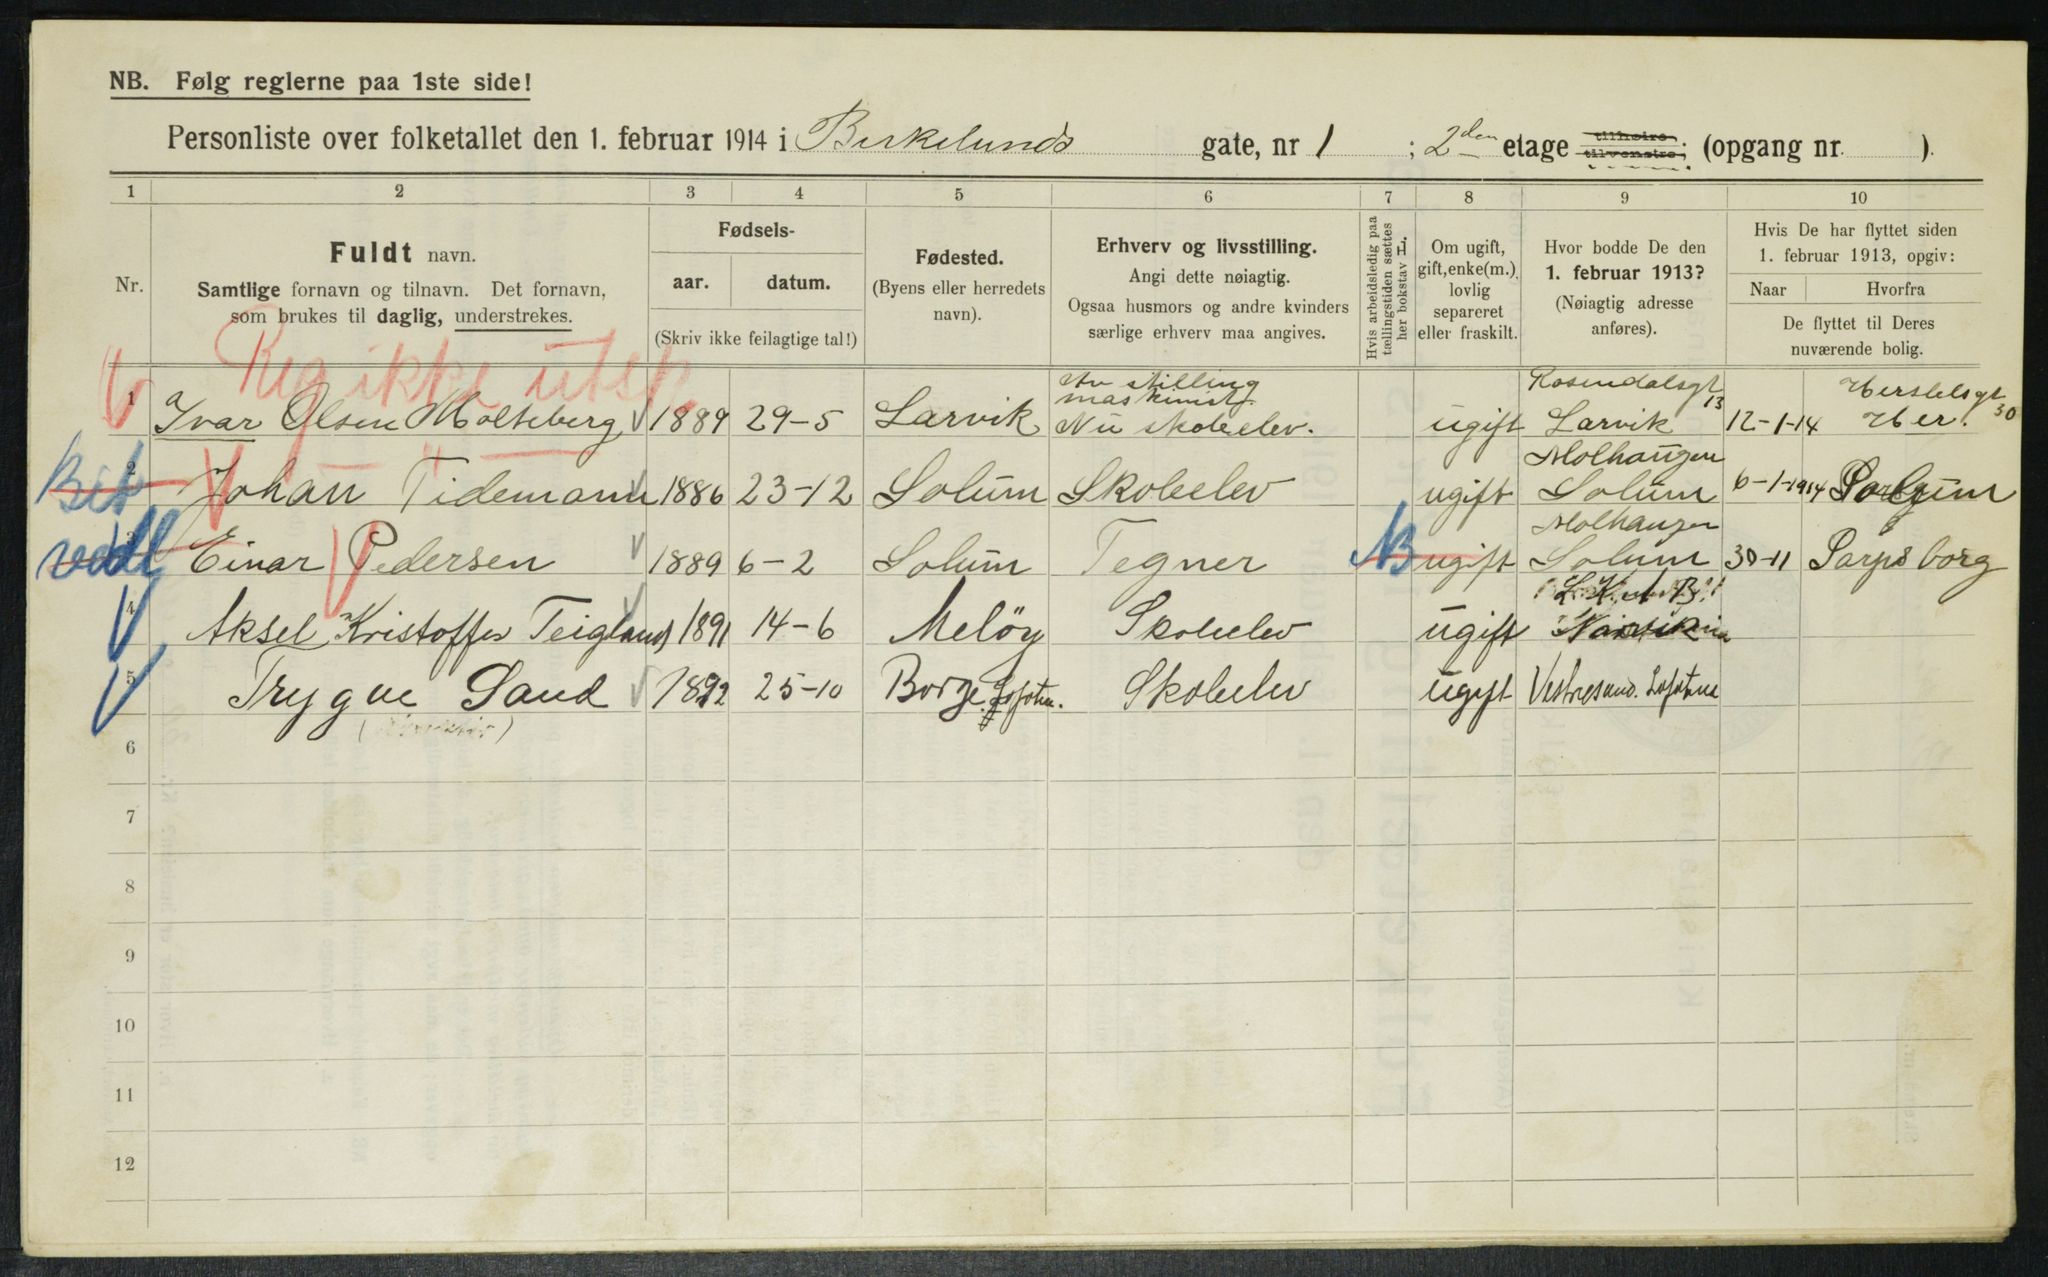 NB. Følg reglerne paa 1ste side!
Personliste over folketallet den 1. februar 1914 i Birkelunds gate, nr 1 ; 2den etage tilhøire tilvenstre; (opgang nr. ).
1 2 3 4 5 6 7 8 9 10
Nr.
Fuldt navn.
Samtlige fornavn og tilnavn. Det fornavn,
som brukes til daglig, understrekes.
Fødsels-
aar. datum.
(Skriv ikke feilagtige tal!)
Fødested.
(Byens eller herredets
navn).
Erhverv og livsstilling.
Angi dette nøiagtig.
Ogsaa husmors og andre kvinders
særlige erhverv maa angives.
Hvis arbeidsledig paa
tællingstiden sættes
her bokstav L.
Om ugift,
gift, enke(m.),
lovlig
separeret
eller fraskilt.
Hvor bodde De den
1. februar 1913?
(Nøiagtig adresse
anføres).
Hvis De har flyttet siden
1. februar 1913, opgiv:
Naar Hvorfra
De flyttet til Deres
nuværende bolig.
Reg ikke utsk.
1 Ivar Olsen Molteberg 1889 29-5 Larvik Av stilling maskinist. Nu skoleelev. ugift Rosendalsgt 13 Larvik 12-1-14 Herslebsgt 30 Her.
2 Johan Tidemann 1886 23-12 Solum Skoleelev ugift Molhaugen Solum 6-1-1914 Solum
3 Einar Pedersen 1889 6-2 Solum Tegner NB ugift Molhaugen Solum 30-11 Sarpsborg
4 Aksel Kristoffer Teigland 1891 14-6 Meløy Skoleelev ugift
5 Trygve Sand 1892 25-10 Borge Lofoten. Skoleelev ugift Vestresand. Lofotene
6
7
8
9
10
11
12